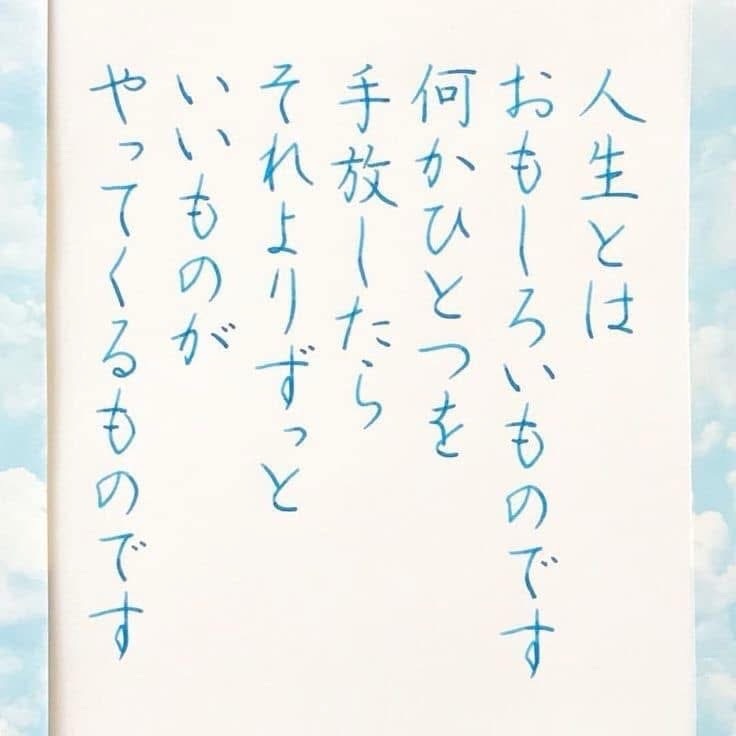 人生とは
おもしろいものです
何かひとつを
手放したら
それよりずっと
いいものが
やってくるものです